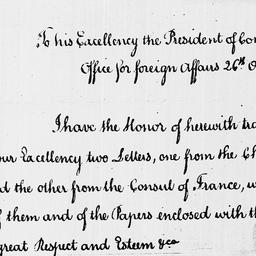 To his Excellency the President of Con
Office for foreign Affairs 26th O
I have the Honor of herewith tra
our Excellency two Letters, one from the Ch
d the other from the Consul of France, w
f them and of the Papers enclosed with th
great Respect and Esteem &ca